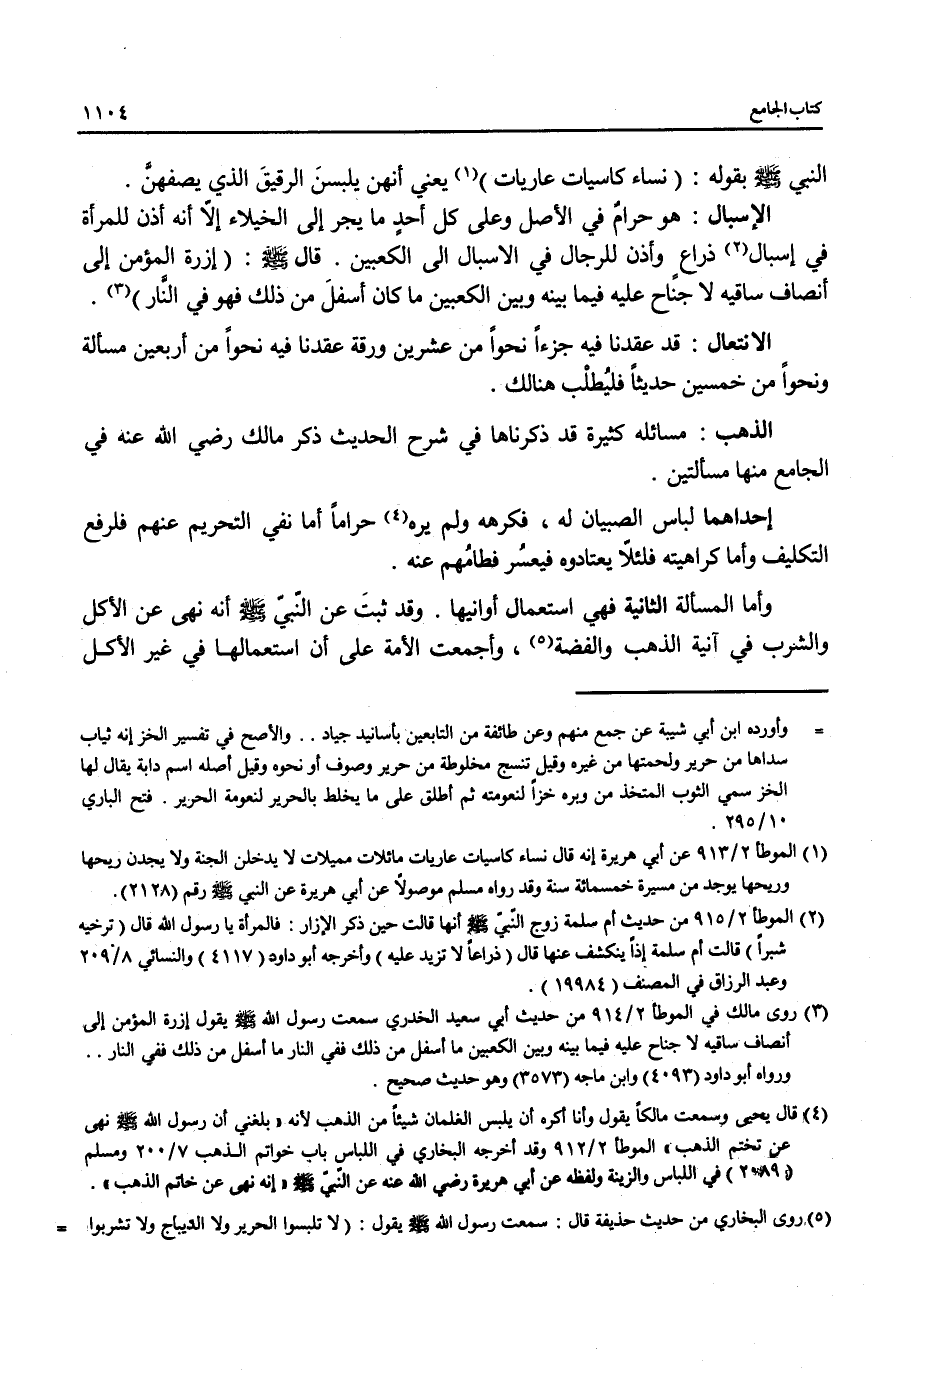 كتاب الجامع
١١٠٤
النبي ﷺ بقوله : ( نساء كاسيات عاريات )(١) يعني أنهن يلبسنَ الرقيقَ الذي يصفهنَّ .
الإسبال : هو حرامٌ في الأصل وعلى كل أحدٍ ما يجر إلى الخيلاء إلّا أنه أذن للمرأة
في إسبال(٢) ذراع وأذن للرجال في الاسبال الى الكعبين . قال ﷺ : ( إزرة المؤمن إلى
أنصاف ساقيه لا جناح عليه فيما بينه وبين الكعبين ما كان أسفلَ من ذلك فهو في النَّار )(٣) .
الانتعال : قد عقدنا فيه جزءاً نحواً من عشرين ورقة عقدنا فيه نحواً من أربعين مسألة
ونحواً من خمسين حديثاً فليُطلْب هنالك .
الذهب : مسائله كثيرة قد ذكرناها في شرح الحديث ذكر مالك رضي الله عنه في
الجامع منها مسألتين .
إحداهما لباس الصبيان له ، فكرهه ولم يره(٤) حراماً أما نفي التحريم عنهم فلرفع
التكليف وأما كراهيته فلئلّا يعتادوه فيعسُر فطامُهم عنه .
وأما المسألة الثانية فهي استعمال أوانيها . وقد ثبتَ عن النّبيّ ﷺ أنه نهى عن الأكل
والشرب في آنية الذهب والفضة(٥) ، وأجمعت الأمة على أن استعمالها في غير الأكل
= وأورده ابن أبي شيبة عن جمع منهم وعن طائفة من التابعين بأسانيد جياد .. والأصح في تفسير الخز إنه ثياب
سداها من حرير ولحمتها من غيره وقيل تنسج مخلوطة من حرير وصوف أو نحوه وقيل أصله اسم دابة يقال لها
الخز سمي الثوب المتخذ من وبره خزاً لنعومته ثم أطلق على ما يخلط بالحرير لنعومة الحرير . فتح الباري
٢٩٥/١٠ .
(١) الموطأ ٩١٣/٢ عن أبي هريرة إنه قال نساء كاسيات عاريات مائلات مميلات لا يدخلن الجنة ولا يجدن ريحها
وريحها يوجد من مسيرة خمسمائة سنة وقد رواه مسلم موصولاً عن أبي هريرة عن النبي ﷺ رقم (٢١٢٨).
(٢) الموطأ ٩١٥/٢ من حديث أم سلمة زوج النّبيّ ﷺ أنها قالت حين ذكر الإزار : فالمرأة يا رسول الله قال ( ترخيه
شبراً ) قالت أم سلمة إذاً ينكشف عنها قال ( ذراعاً لا تزيد عليه ) وأخرجه أبو داود ( ٤١١٧ ) والنسائي ٢٠٩/٨
وعبد الرزاق في المصنف ( ١٩٩٨٤ ) .
(٣) روى مالك في الموطأ ٩١٤/٢ من حديث أبي سعيد الخدري سمعت رسول الله ﷺ يقول إزرة المؤمن إلى
أنصاف ساقيه لا جناح عليه فيما بينه وبين الكعبين ما أسفل من ذلك ففي النار ما أسفل من ذلك ففي النار ..
ورواه أبو داود (٤٠٩٣) وابن ماجه (٣٥٧٣) وهو حديث صحيح .
(٤) قال يحيى وسمعت مالكاً يقول وأنا أكره أن يلبس الغلمان شيئاً من الذهب لأنه « بلغني أن رسول الله ﷺ نهى
عن تختم الذهب » الموطأ ٩١٢/٢ وقد أخرجه البخاري في اللباس باب خواتم الذهب ٢٠٠/٧ ومسلم
( ٢٠٨٩ ) في اللباس والزينة ولفظه عن أبي هريرة رضي الله عنه عن النّبيّ ﷺ « إنه نهى عن خاتم الذهب » .
(٥) روى البخاري من حديث حذيفة قال : سمعت رسول الله ﷺ يقول : ( لا تلبسوا الحرير ولا الديباج ولا تشربوا =